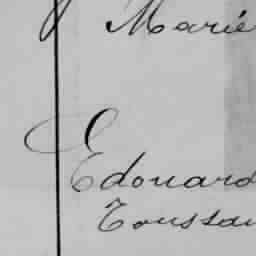 Marie
Edouard
Toussai